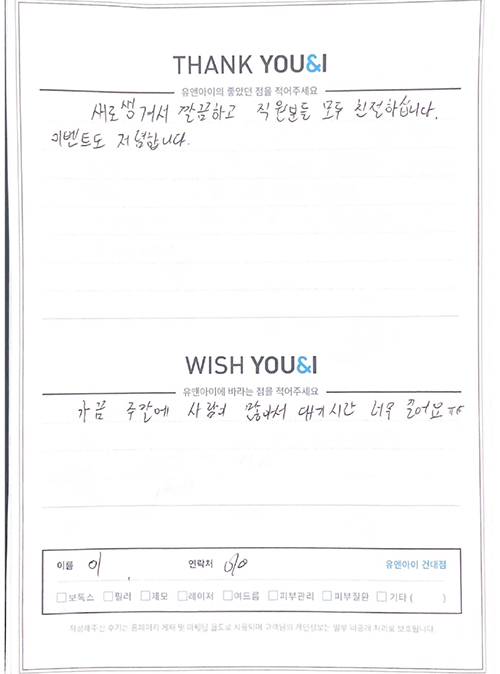 THANK YOU&I
유앤아이의 좋았던 점을 적어주세요
새로생겨서 깔끔하고 직원분들 모두 친절하십니다.
이벤트도 저렴합니다.
WISH YOU&I
유앤아이에 바라는 점을 적어주세요
가끔 주간에 사람이 많아서 대기시간 너무 길어요ㅠㅠ
이름 이 연락처 010 유앤아이 건대점
보톡스 필러 제모 레이저 여드름 피부관리 피부질환 기타 ( )
작성해주신 후기는 홈페이지 게재 및 마케팅 용도로 사용되며 고객님의 개인정보는 일부 비공개 처리로 보호됩니다.